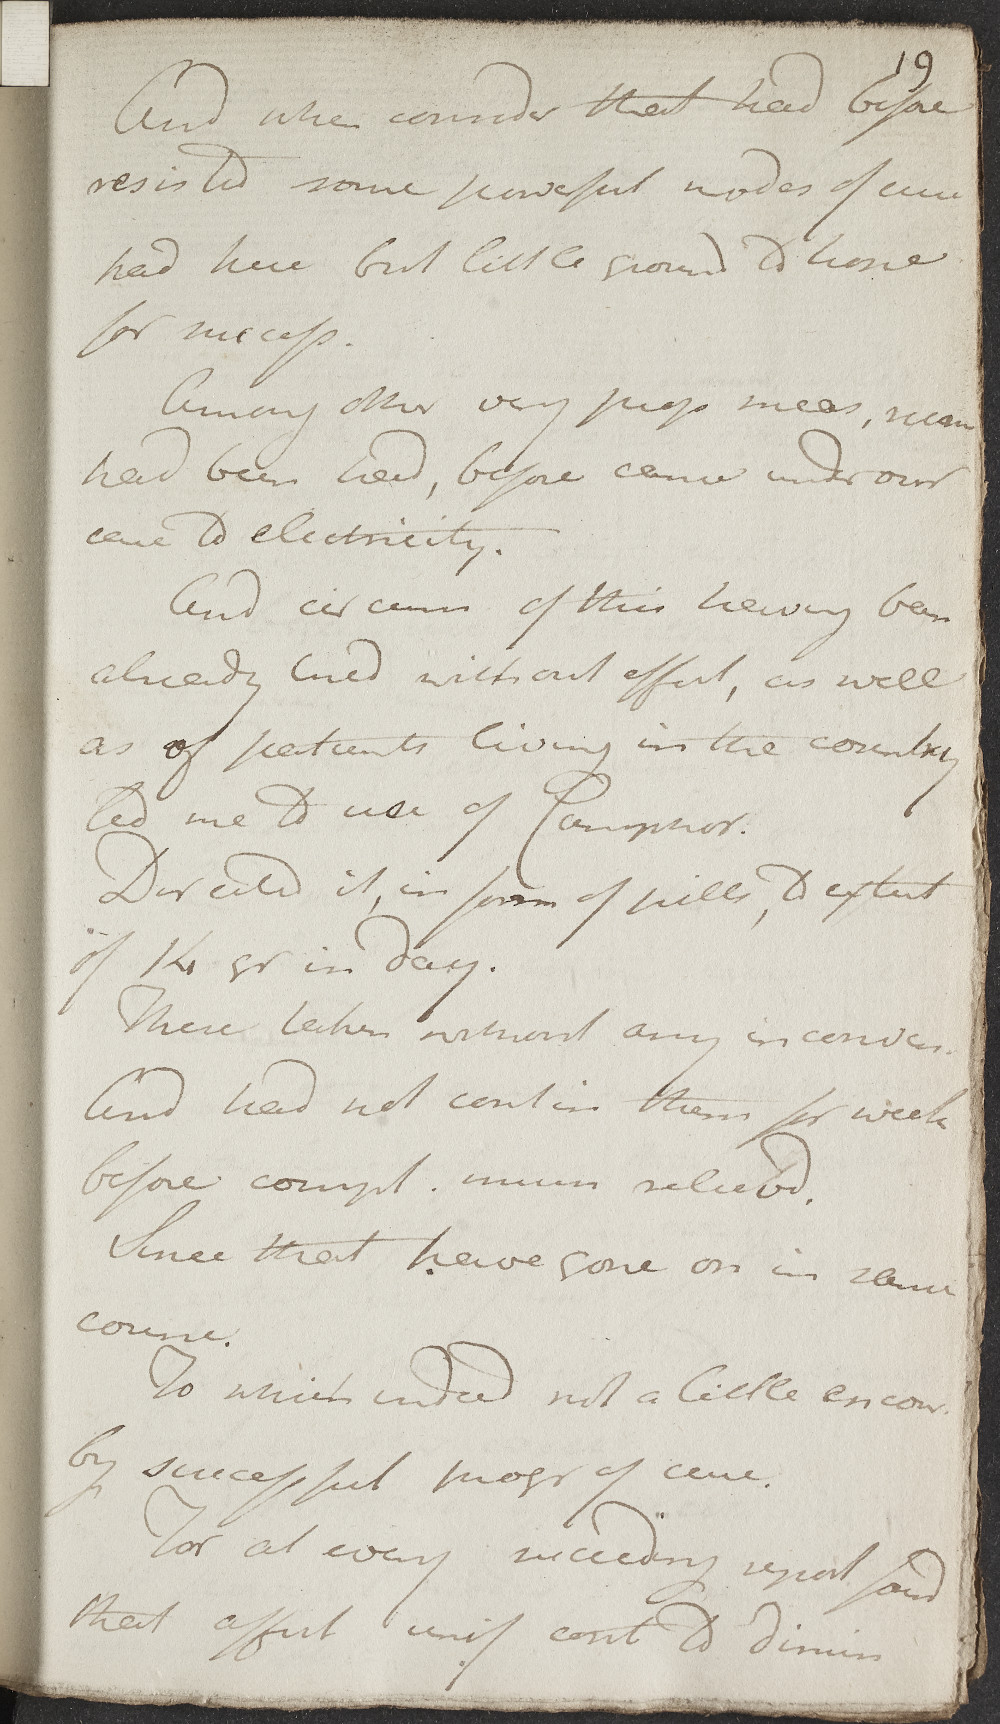 19
And when consider that had before
resisted some powerful modes of cure
had here but little ground to hope
for success.
Among other very prop meas,
had been had, before came under our
care to electricity.
And circum of this having been
already tried without effect, as well
as of patients living in the country
led me to use of Camphor.
Directed it, in form of pills, to extent
of 14 gr in day.
These taken without any inconven.
And had not contin them for week
before compt. mum relieved.
Since that have gone on in same
course.
To which indeed not a little encour.
by successful progr of cure.
For at every succeeding report found
that affect unif cont to dimin